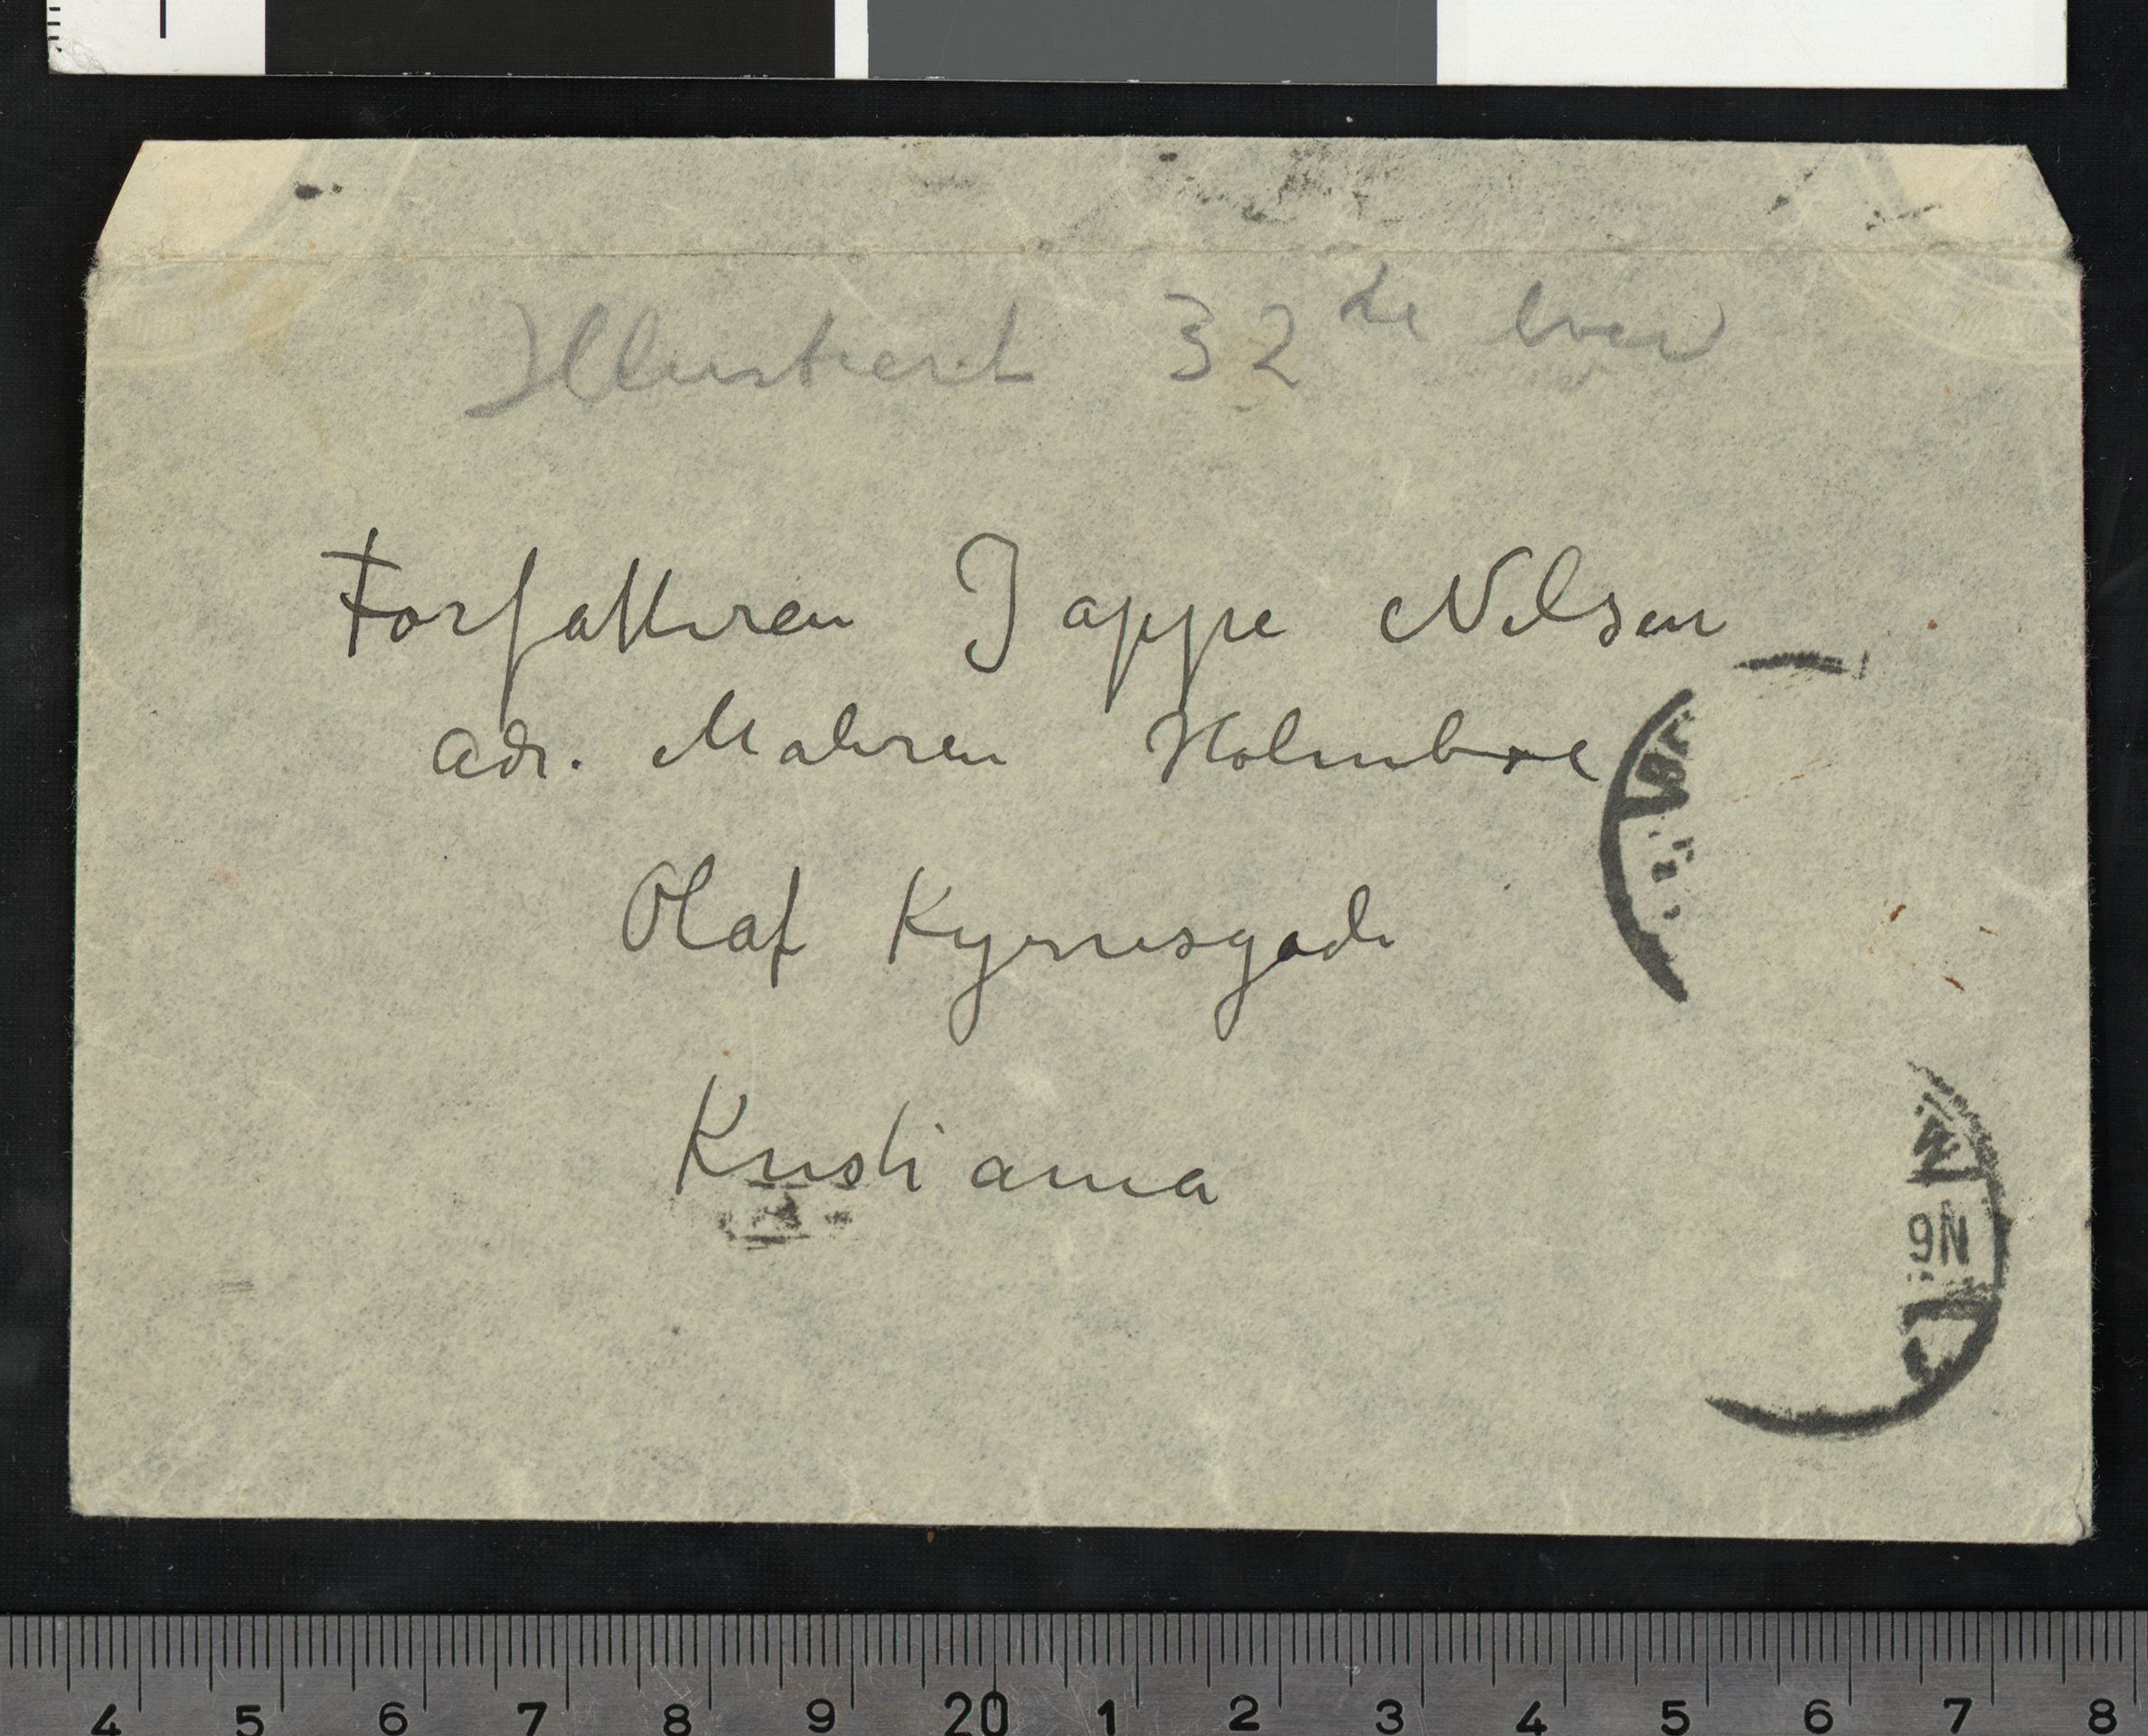 Illustrert 32 de brev
Forfatteren Jappe Nilsen
adr. Maleren Holmboe
Olaf Kyrresgade
Kristiania
9N
4 5 6 7 8 9 20 1 2 3 4 5 6 7 8